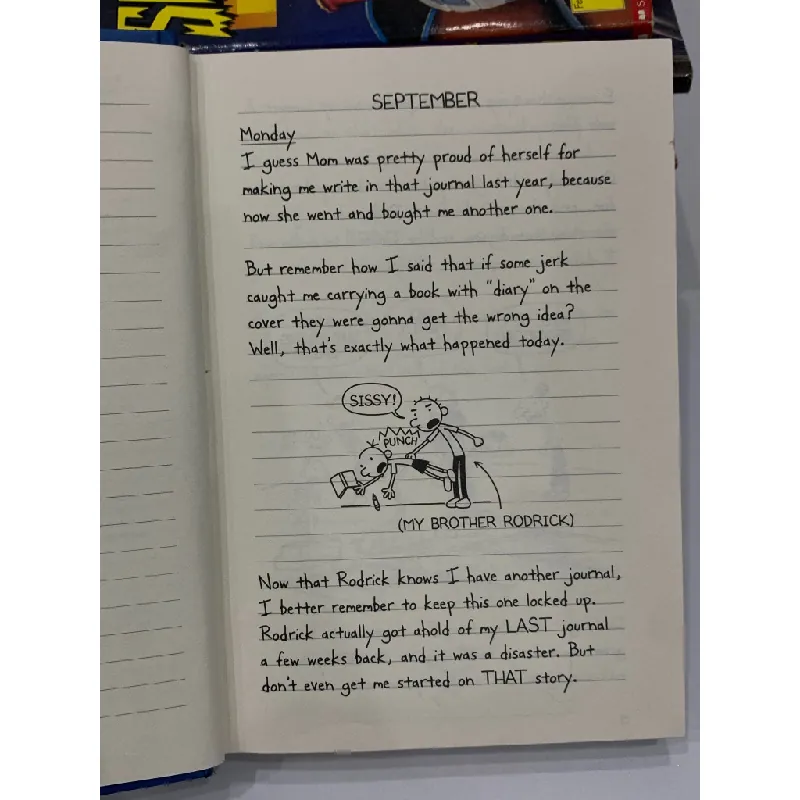 SEPTEMBER
Monday
I guess Mom was pretty proud of herself for
making me write in that journal last year, because
now she went and bought me another one.
But remember how I said that if some jerk
caught me carrying a book with "diary" on the
cover they were gonna get the wrong idea?
Well, that's exactly what happened today.
SISSY!
PUNCH
(MY BROTHER RODRICK)
Now that Rodrick knows I have another journal,
I better remember to keep this one locked up.
Rodrick actually got ahold of my LAST journal
a few weeks back, and it was a disaster. But
don't even get me started on THAT story.